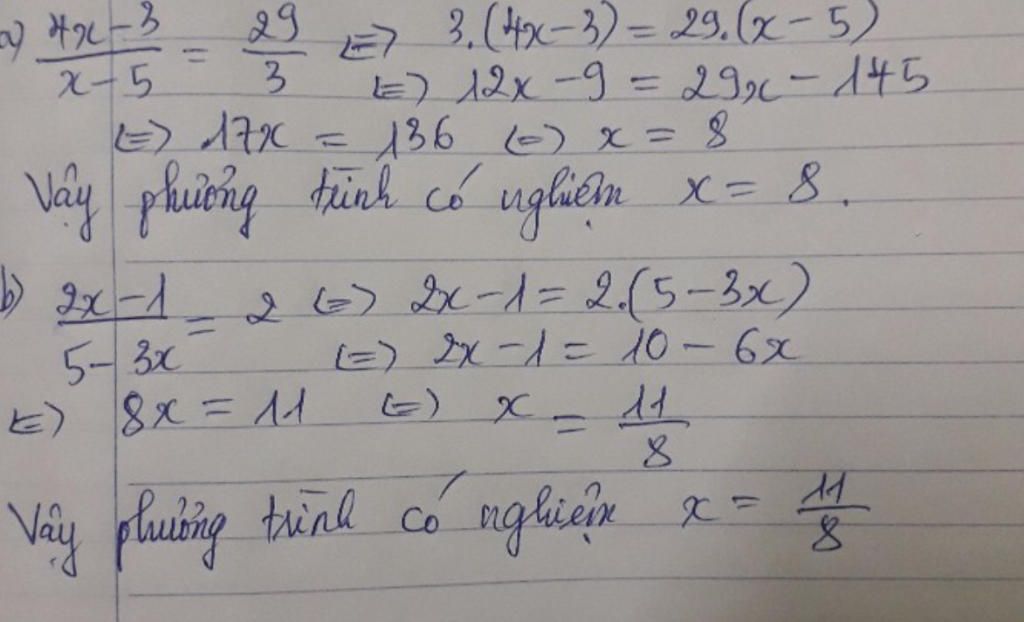 a) (4x-3)/(x-5) = 29/3 <=> 3.(4x-3) = 29.(x-5)
<=> 12x - 9 = 29x - 145
<=> 17x = 136 <=> x = 8
Vậy phương trình có nghiệm x = 8.
b) (2x-1)/(5-3x) = 2 <=> 2x-1 = 2.(5-3x)
<=> 2x-1 = 10 - 6x
<=> 8x = 11 <=> x = 11/8
Vậy phương trình có nghiệm x = 11/8